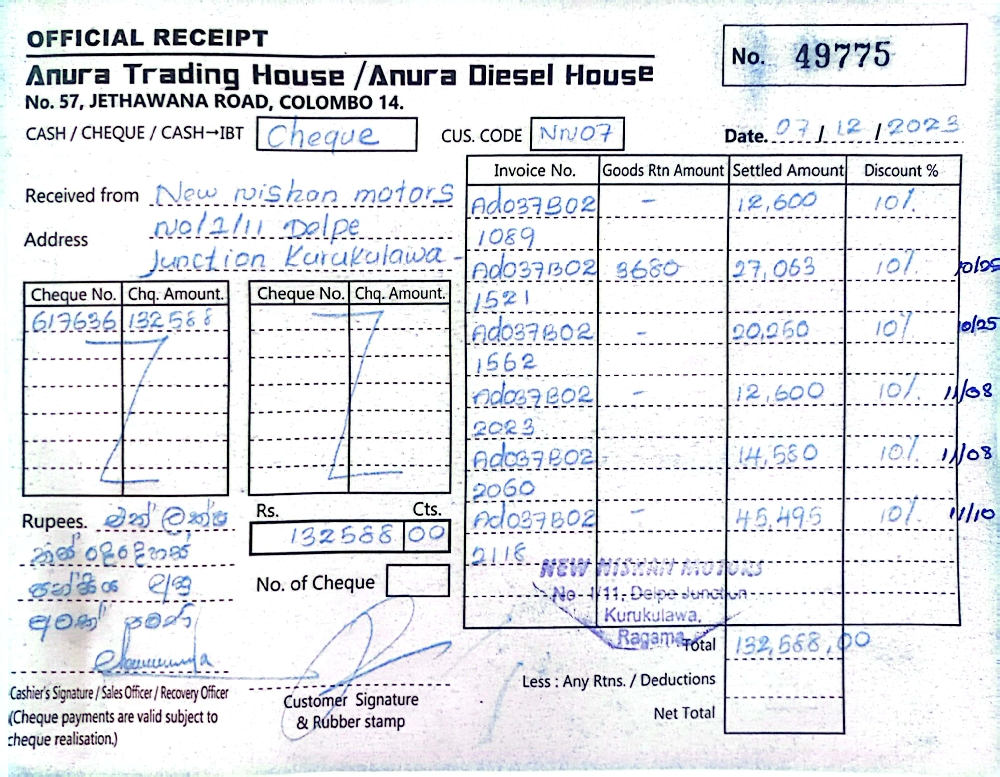 OFFICIAL RECEIPT
No. 49775
Anura Trading House / Anura Diesel House
No. 57, JETHAWANA ROAD, COLOMBO 14.
CASH / CHEQUE / CASH→IBT Cheque
CUS. CODE NN07
Date. 07 / 12 / 2023
Received from New Nishan motors
Address No/1/11 Delpe
Junction Kurukulawa -
Invoice No. Goods Rtn Amount Settled Amount Discount %
Ad037B02 - 12,600 10%
1089
Ad037B02 3680 27,063 10% 10/25
1521
Ad037B02 - 20,250 10% 10/25
1562
Ad037B02 - 12,600 10% 11/08
2023
Ad037B02 - 14,580 10% 11/08
2060
Ad037B02 - 45,495 10% 11/10
2118
Cheque No. Chq. Amount.
617636 132588
Cheque No. Chq. Amount.
Rupees. එක් ලක්ෂ
තිස් දෙදහස්
පන්සිය අසූ
අටක් පමණි
Rs. Cts.
132588 00
No. of Cheque
NEW NISHAN MOTORS
No 1/11, Delpe Junction
Kurukulawa,
Ragama
Total 132,588,00
Less : Any Rtns. / Deductions
Net Total
Cashier's Signature / Sales Officer / Recovery Officer
(Cheque payments are valid subject to
cheque realisation.)
Customer Signature
& Rubber stamp